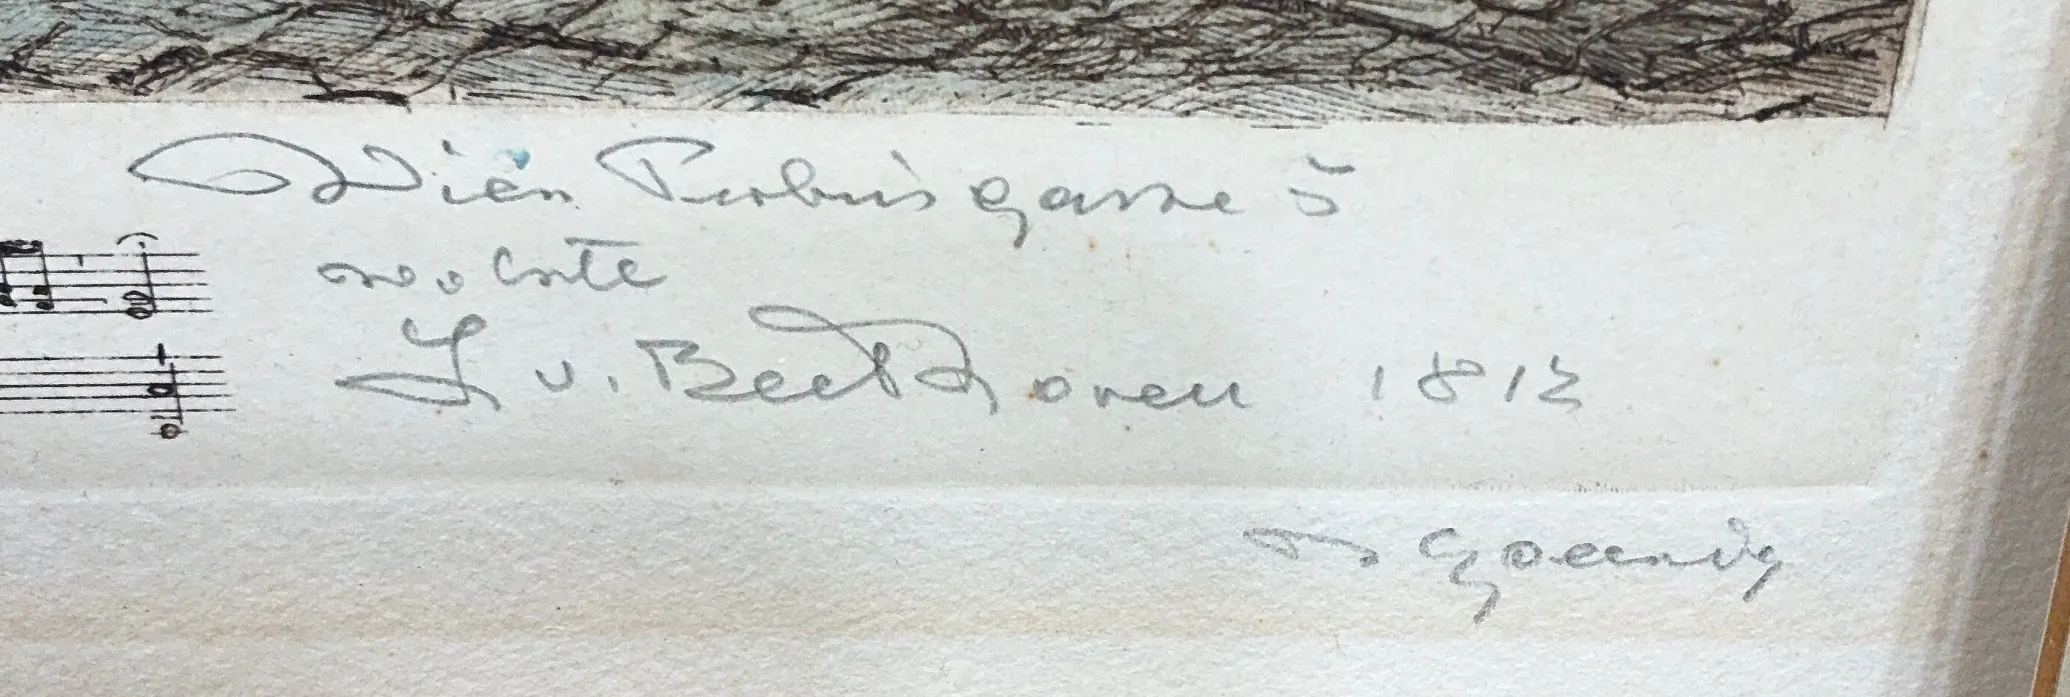 Wien Probusgasse 5
wohnte
L v. Beethoven 1812